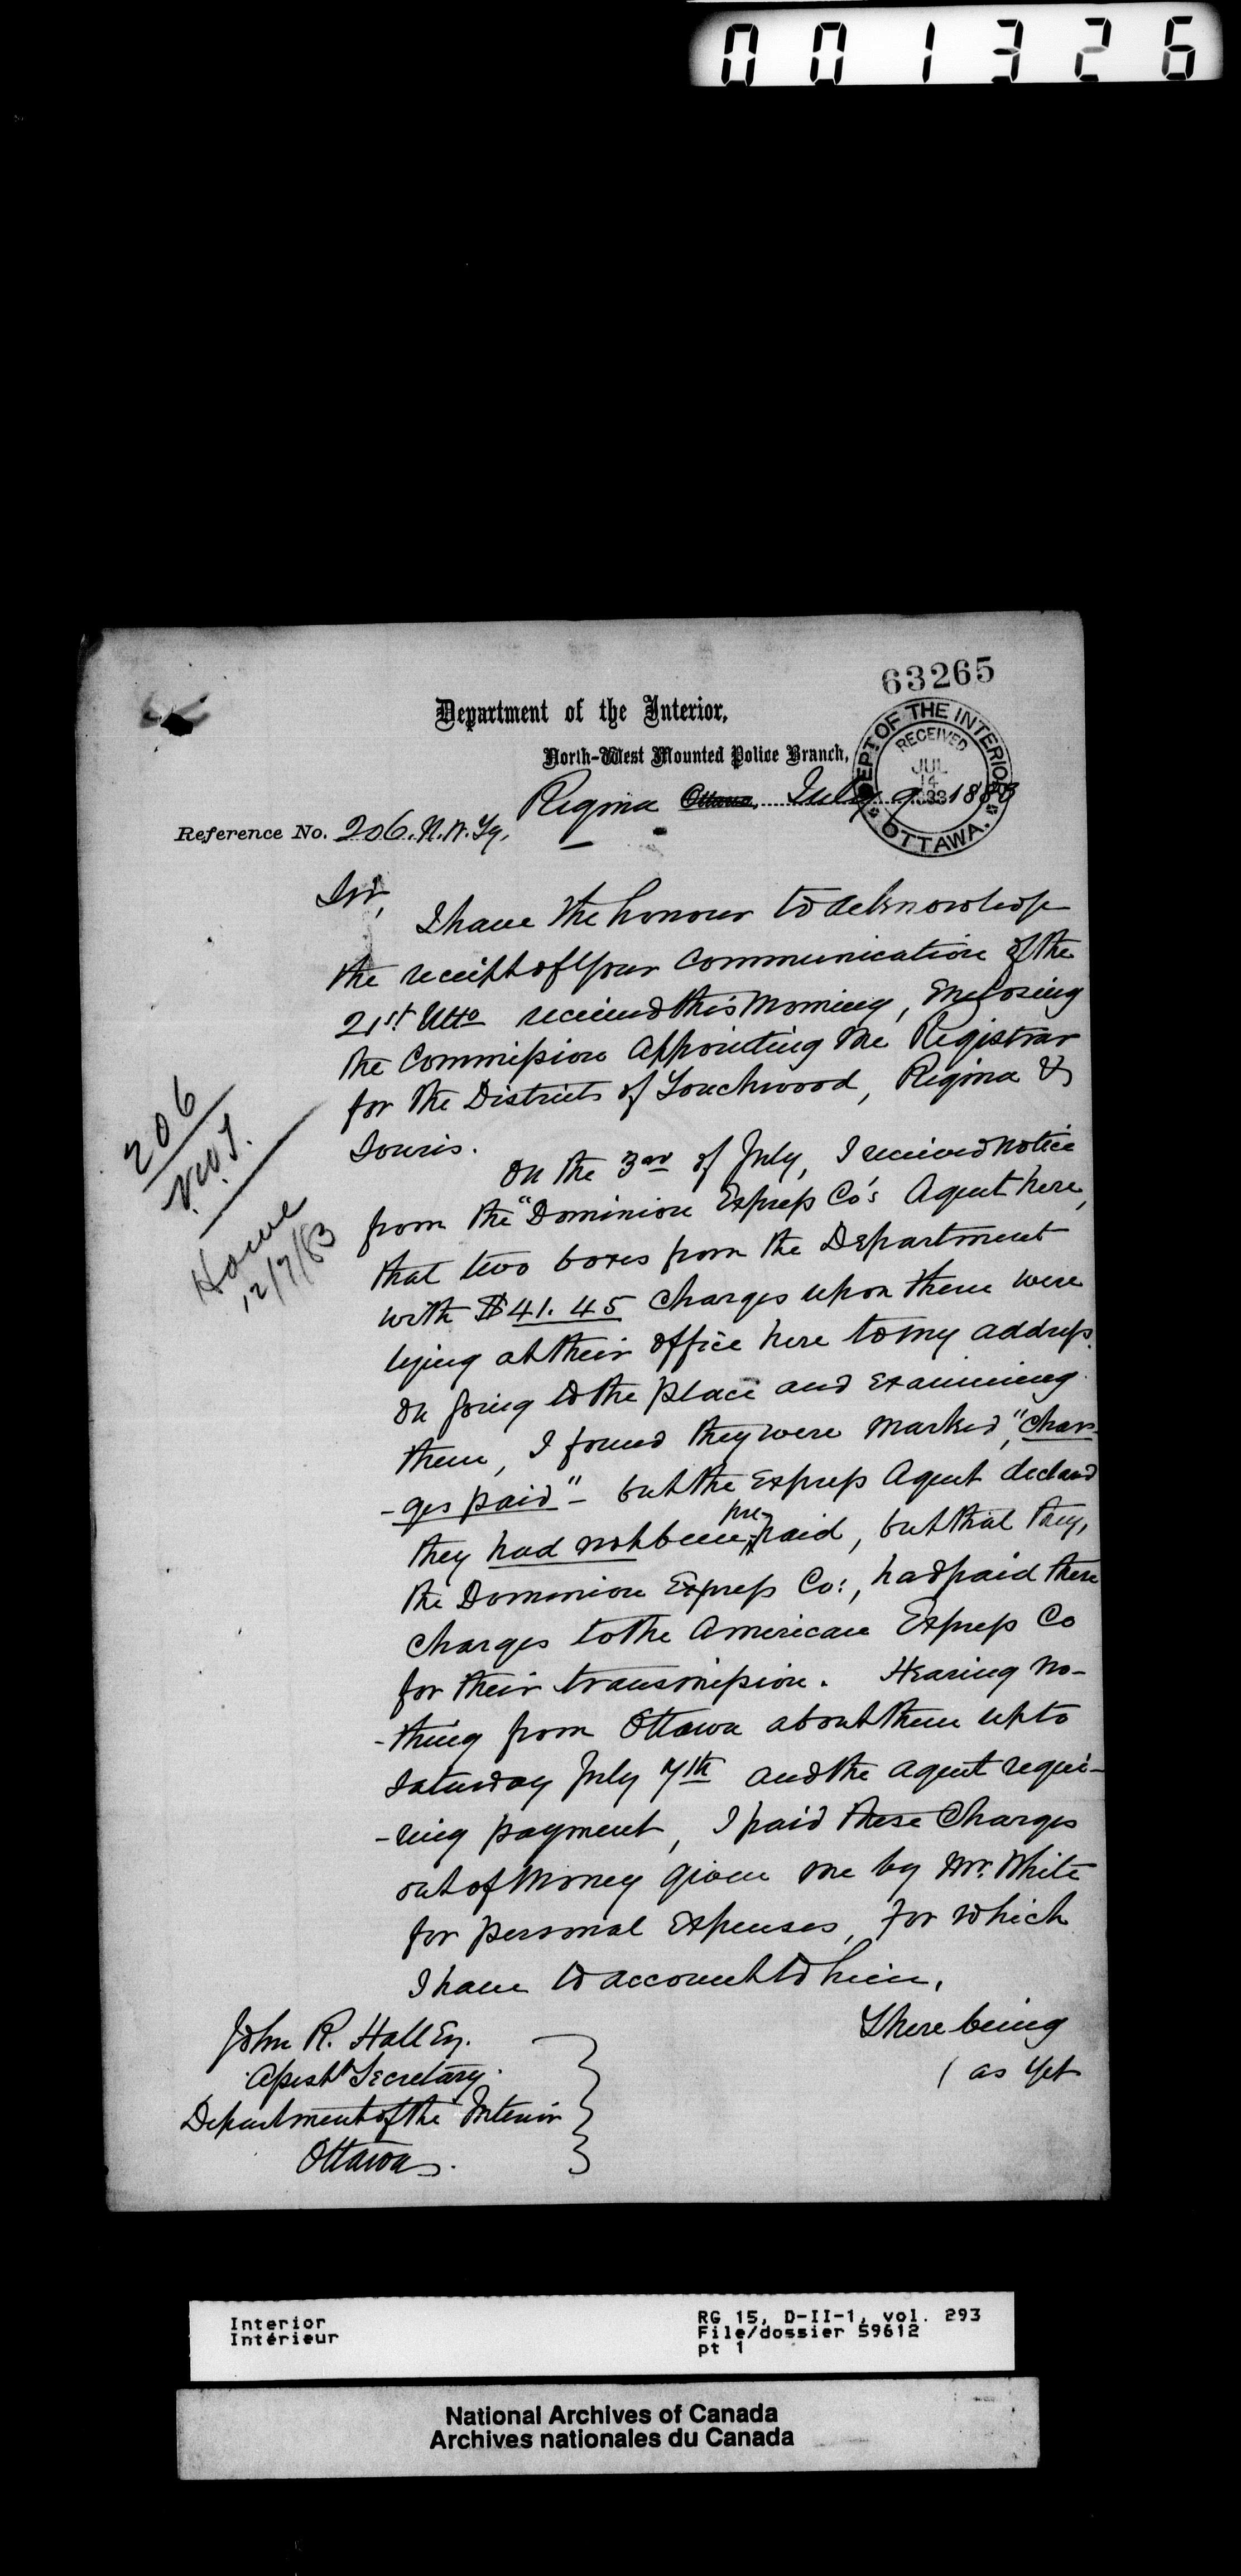 001326
63265
Department of the Interior,
North-West Mounted Police Branch,
DEPT OF THE INTERIOR
RECEIVED
JUL
14
1883
OTTAWA.
Regina Ottawa, July 9 1883
Reference No. 206. N.W.Ty.
Sir,
I have the honour to acknowledge
the receipt of your communication of the
21st Ulto received this morning, Enclosing
the Commission appointing me Registrar
for the Districts of Touchwood, Regina &
Souris.
206
N.W.T.
12/7/83
On the 3rd of July, I received notice
from the "Dominion Express Co's Agent here,
that two boxes from the Department
with $41.45 charges upon them were
lying at their office here to my address.
On going to the place and examining
them, I found they were marked, "char-
-ges paid" - but the Express Agent declared
they had not been pre-paid, but that they,
the Dominion Express Co:, had paid these
charges to the American Express Co
for their transmission. Hearing no-
-thing from Ottawa about them up to
Saturday July 7th and the agent requi-
-ring payment, I paid these charges
out of money given me by Mr. White
for personal expenses, for which
I have to account to him.
There being
/ as yet
John R. Hall Esq.
Assistt Secretary.
Department of the Interior
Ottawa.
Interior
Intérieur
RG 15, D-II-1, vol. 293
File/dossier 59612
pt 1
National Archives of Canada
Archives nationales du Canada